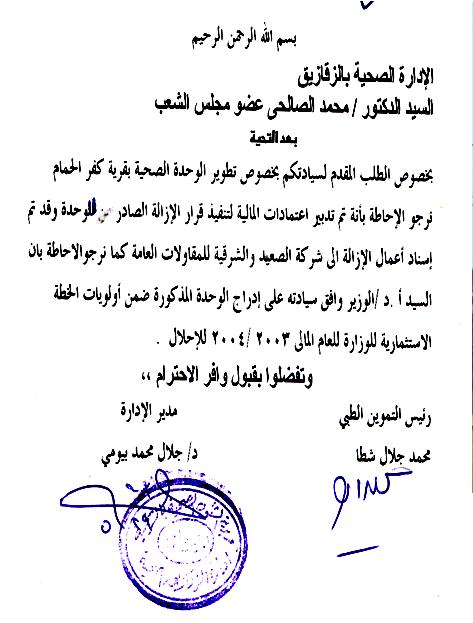 بسم الله الرحمن الرحيم
الإدارة الصحية بالزقازيق
السيد الدكتور / محمد الصالحى عضو مجلس الشعب
بعد التحية
بخصوص الطلب المقدم لسيادتكم بخصوص تطوير الوحدة الصحية بقرية كفر الحمام
نرجو الإحاطة بأنة تم تدبير اعتمادات المالية لتنفيذ قرار الإزالة الصادر للوحدة وقد تم
إسناد أعمال الإزالة الى شركة الصعيد والشرقية للمقاولات العامة كما نرجو الاحاطة بان
السيد أ .د /الوزير وافق سيادته على إدراج الوحدة المذكورة ضمن أولويات الخطة
الاستثمارية للوزارة للعام المالى ٢٠٠٣ / ٢٠٠٤ للإحلال .
وتفضلوا بقبول وافر الاحترام ،،
رئيس التموين الطبي
مدير الإدارة
محمد جلال شطا
د/ جلال محمد بيومي